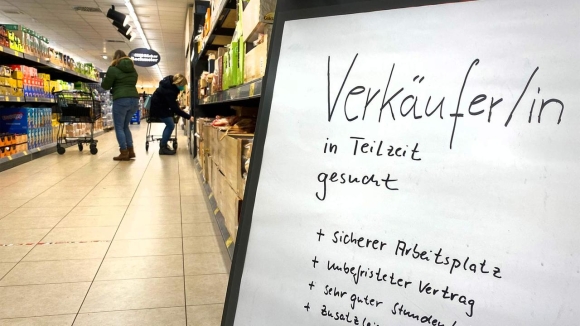 Verkäufer/in
in Teilzeit
gesucht
+ sicherer Arbeitsplatz
+ unbefristeter Vertrag
+ sehr guter